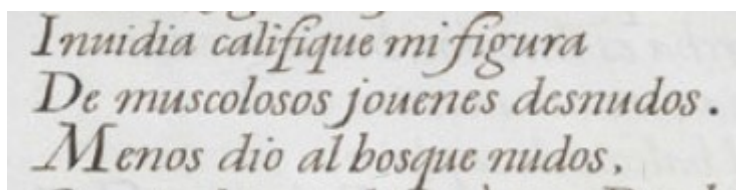 Inuidia califique mi figura
De muscolosos jouenes desnudos.
Menos dio al bosque nudos,